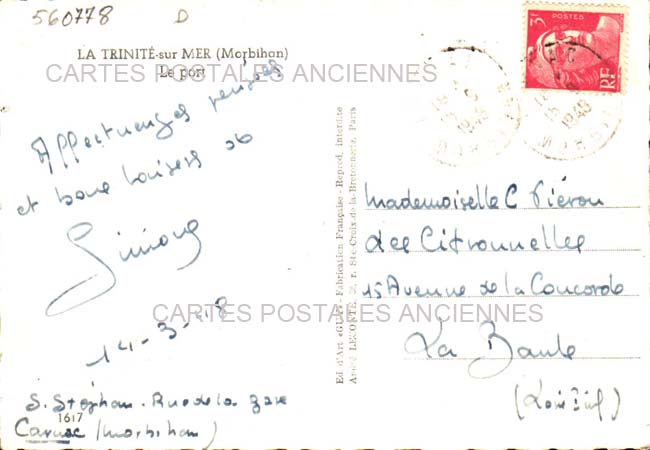 560778 D
LA TRINITÉ-sur MER (Morbihan)
Le port
CARTES POSTALES ANCIENNES
Affectueuses pensées
et bons baisers de
Simone
14-3-48
S. Stéphan. Rue de la gare
Carnac (Morbihan)
1617
Ed. d'Art « - Fabrication Française - Reprod. interdite
LECONTE, r. Ste-Croix-de-la-Bretonnerie, Paris
3F POSTES
RF
1948
MORBIHAN
Mademoiselle C Piéron
Les Citronnelles
15 Avenue de la Concorde
CARTES POSTALES ANCIENNES
La Baule
(Loire Inf)